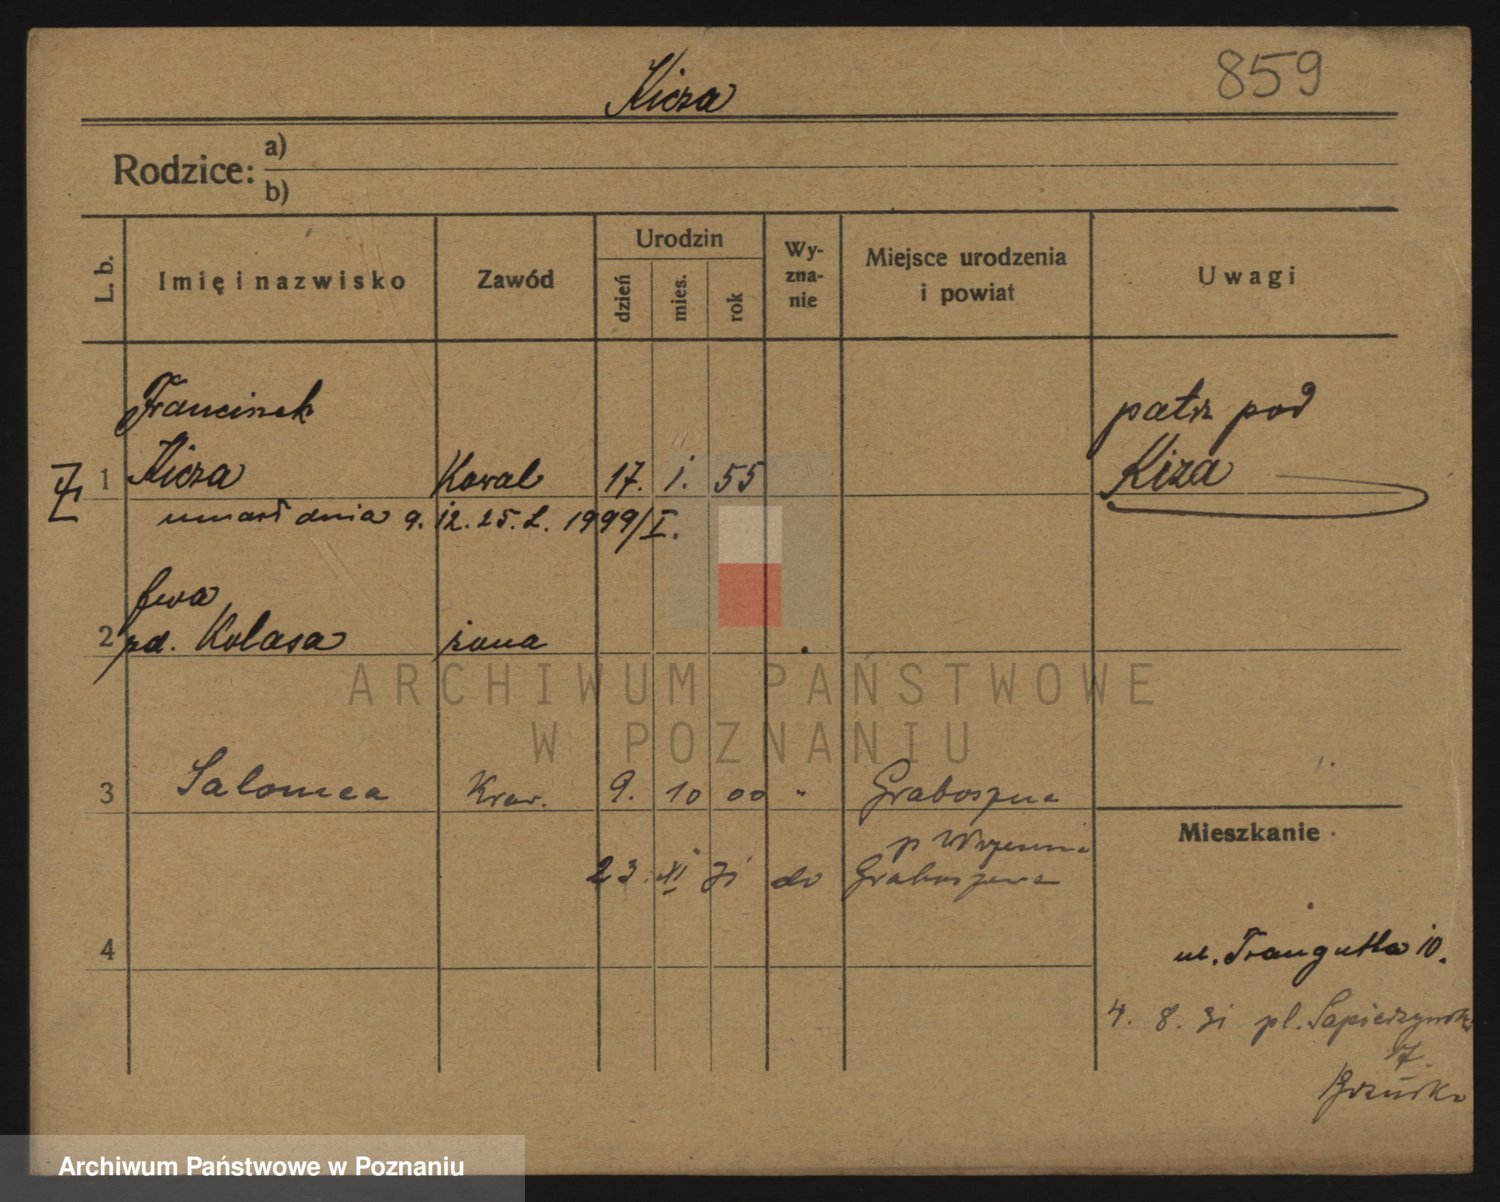 859
Kicza
Rodzice:
a)
b)
L. b.
Imię i nazwisko
Zawód
Urodzin
dzień
mies.
rok
Wy-
zna-
nie
Miejsce urodzenia
i powiat
Uwagi
Franciszek
1 Kicza Kowal 17. 1. 55
umarł dnia 9. 12. 25. L. 1999/I.
patrz pod
Kiza
Ewa
2 zd. Kolasa żona
3 Salomea Kraw. 9. 10 00 " Graboszewo
p Września
23. XI 31 do Graboszewa
4
Mieszkanie
ul. Traugutta 10.
4. 8. 31 pl. Sapieżyński
7.
ARCHIWUM PAŃSTWOWE
W POZNANIU
Archiwum Państwowe w Poznaniu